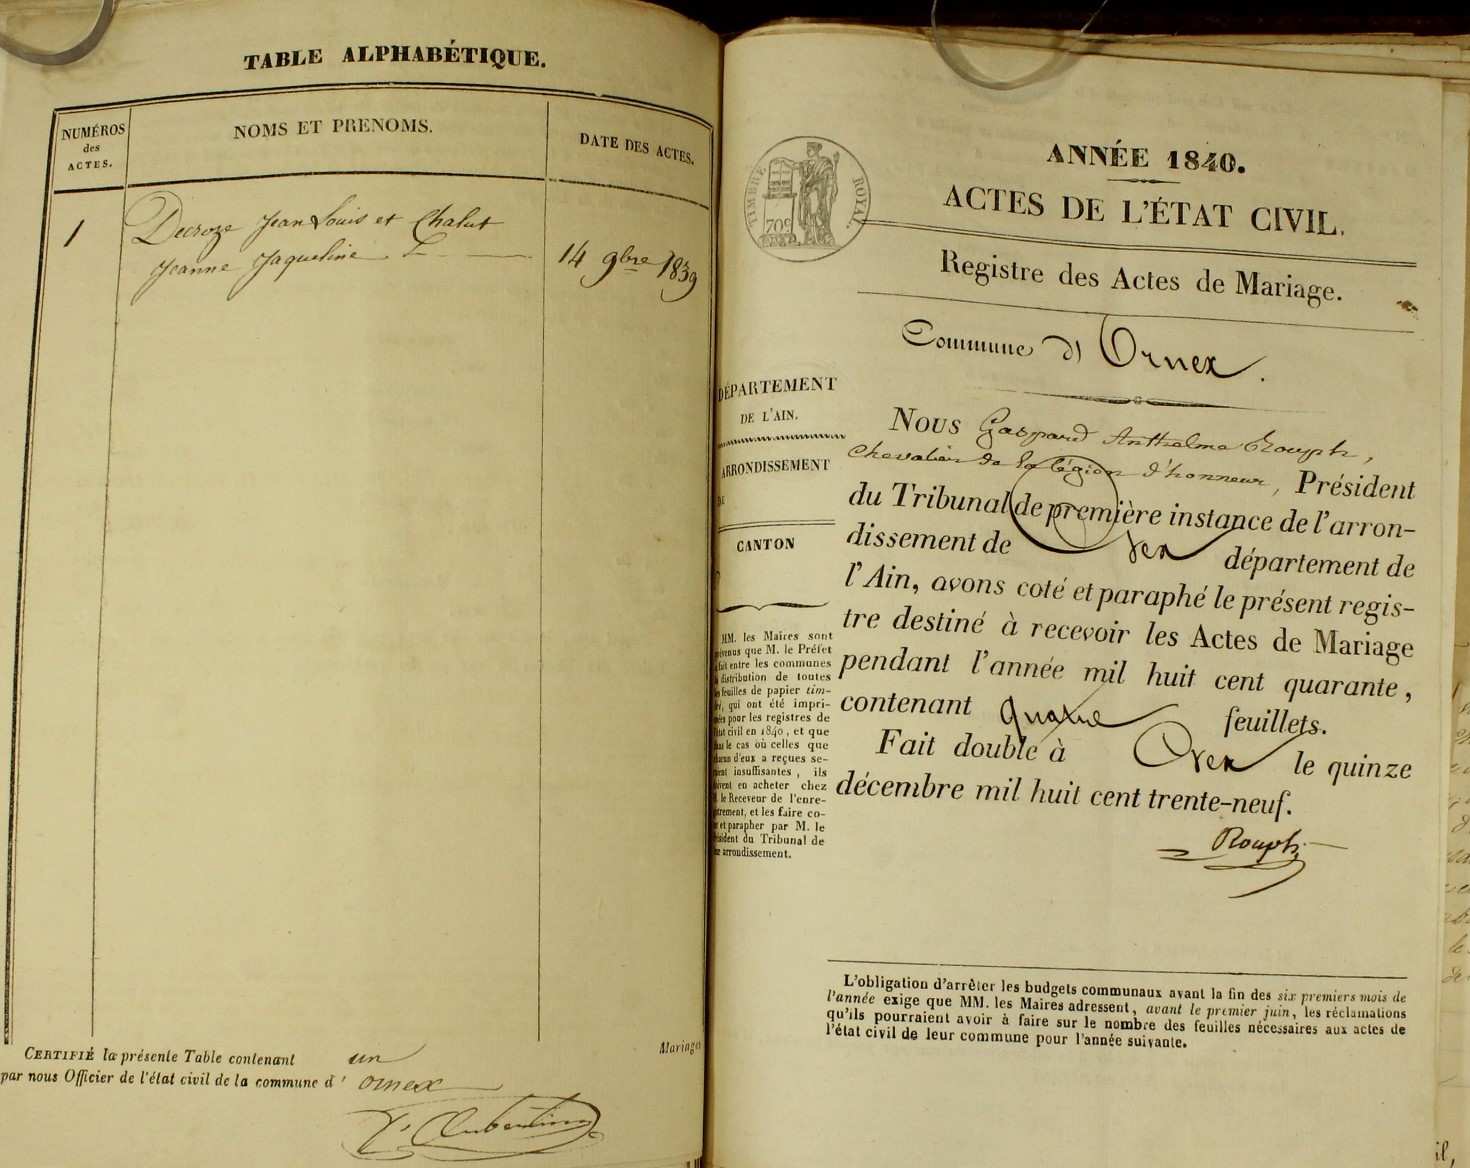 TABLE ALPHABÉTIQUE.
NUMÉROS
des
ACTES.
NOMS ET PRENOMS.
DATE DES ACTES.
1
Decroze Jean Louis et Chalut
Jeanne Jaqueline
14 9bre 1839
CERTIFIÉ la présente Table contenant un
par nous Officier de l'état civil de la commune d' ornex
Mariages
TIMBRE ROYAL.
70c
ANNÉE 1840.
ACTES DE L'ÉTAT CIVIL.
Registre des Actes de Mariage.
Commune d' Ornex.
DÉPARTEMENT
DE L'AIN.
ARRONDISSEMENT
DE
CANTON
MM. les Maires sont
prévenus que M. le Préfet
a fait entre les communes
la distribution de toutes
les feuilles de papier tim-
bré, qui ont été impri-
mées pour les registres de
l'état civil en 1840, et que
dans le cas où celles que
chacun d'eux a reçues se-
raient insuffisantes, ils
doivent en acheter chez
M. le Receveur de l'enre-
gistrement, et les faire co-
ter et parapher par M. le
Président du Tribunal de
arrondissement.
Nous Gaspard Anthelme Rouph,
chevalier de la légion d'honneur, Président
du Tribunal de première instance de l'arron-
dissement de Gex département de
l'Ain, avons coté et paraphé le présent regis-
tre destiné à recevoir les Actes de Mariage
pendant l'année mil huit cent quarante,
contenant quatre feuillets.
Fait double à Gex le quinze
décembre mil huit cent trente-neuf.
Rouph
L'obligation d'arrêter les budgets communaux avant la fin des six premiers mois de
l'année exige que MM. les Maires adressent, avant le premier juin, les réclamations
qu'ils pourraient avoir à faire sur le nombre des feuilles nécessaires aux actes de
l'état civil de leur commune pour l'année suivante.